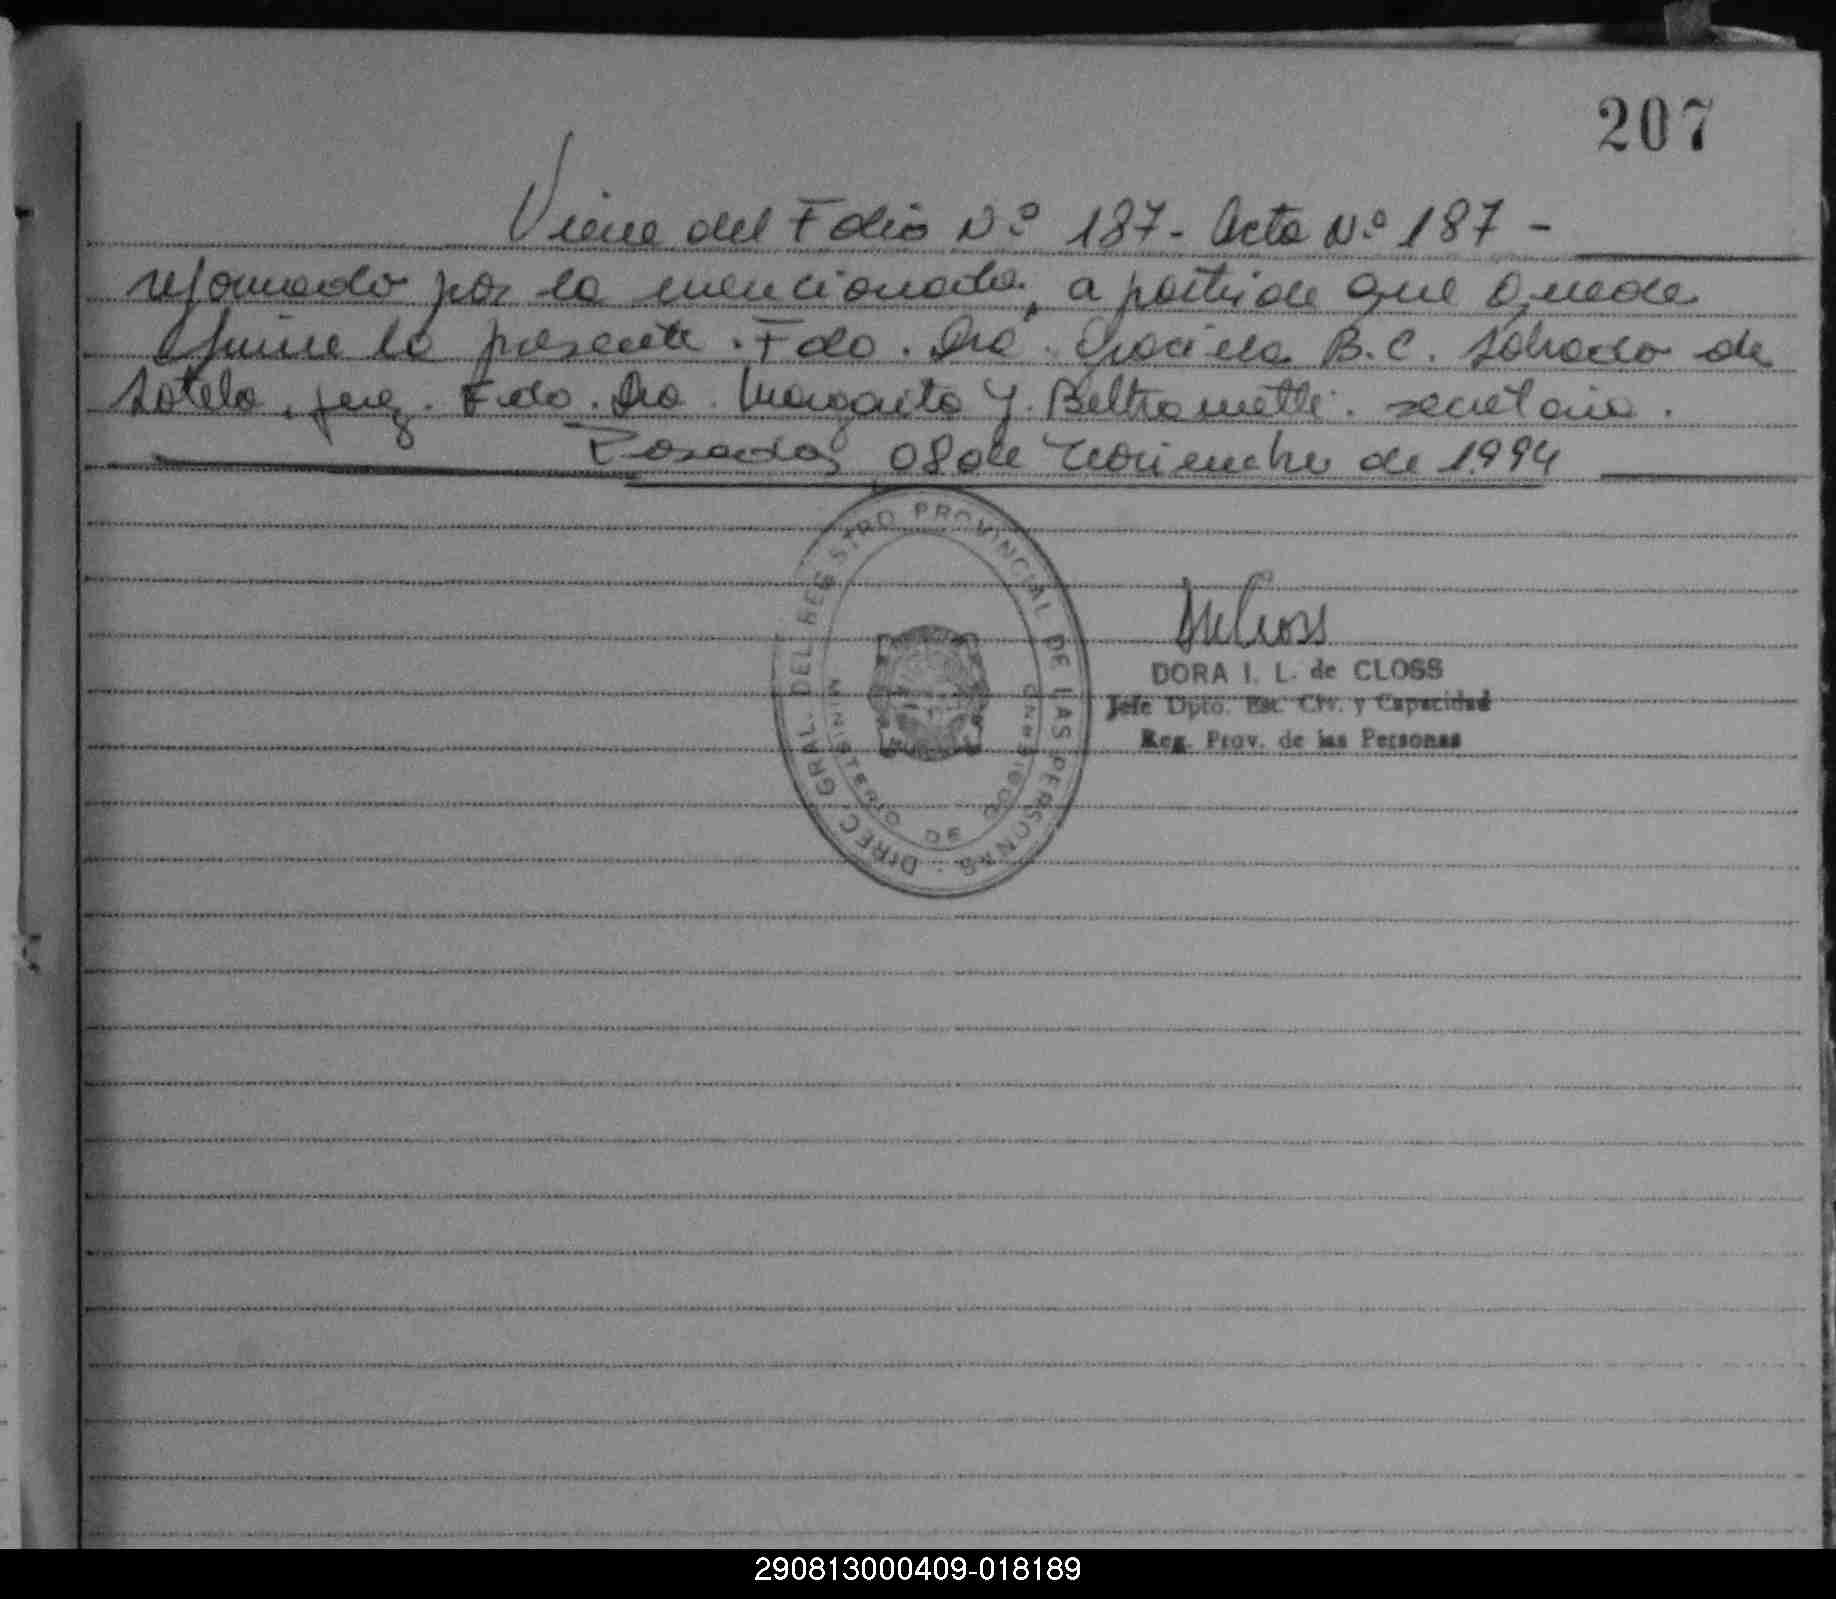 207
Viene del Folio Nº 187 - Acta Nº 187 -
por la mencionada, a partir de que quede
firme la presente. Fdo. Dra. Graciela B.C. de
Sotelo, juez. Fdo. Dra. Margarita Y. Beltrametti. secretaria.
Posadas 08 de Noviembre de 1994
DIREC. GRAL. DEL REGISTRO PROVINCIAL DE LAS PERSONAS
MINISTERIO DE GOBIERNO
DORA I. L. de CLOSS
Jefe Dpto. Est. Civ. y Capacidad
Reg. Prov. de las Personas
290813000409-018189